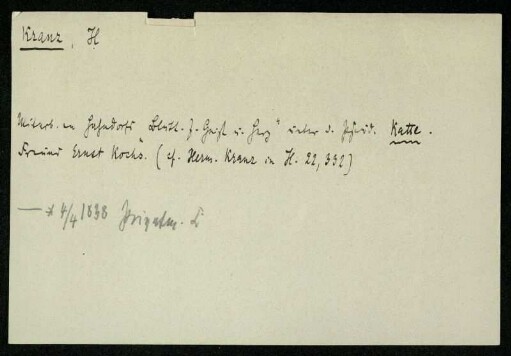 Kranz, H
Mitarb. an Hahndorfs „Blätt. f. Geist u. Herz" unter d. Pseud. Katte.
Freund Ernst Kochs. (cf. Herm. Kranz in H. 22, 332)
— * 4/4 1838